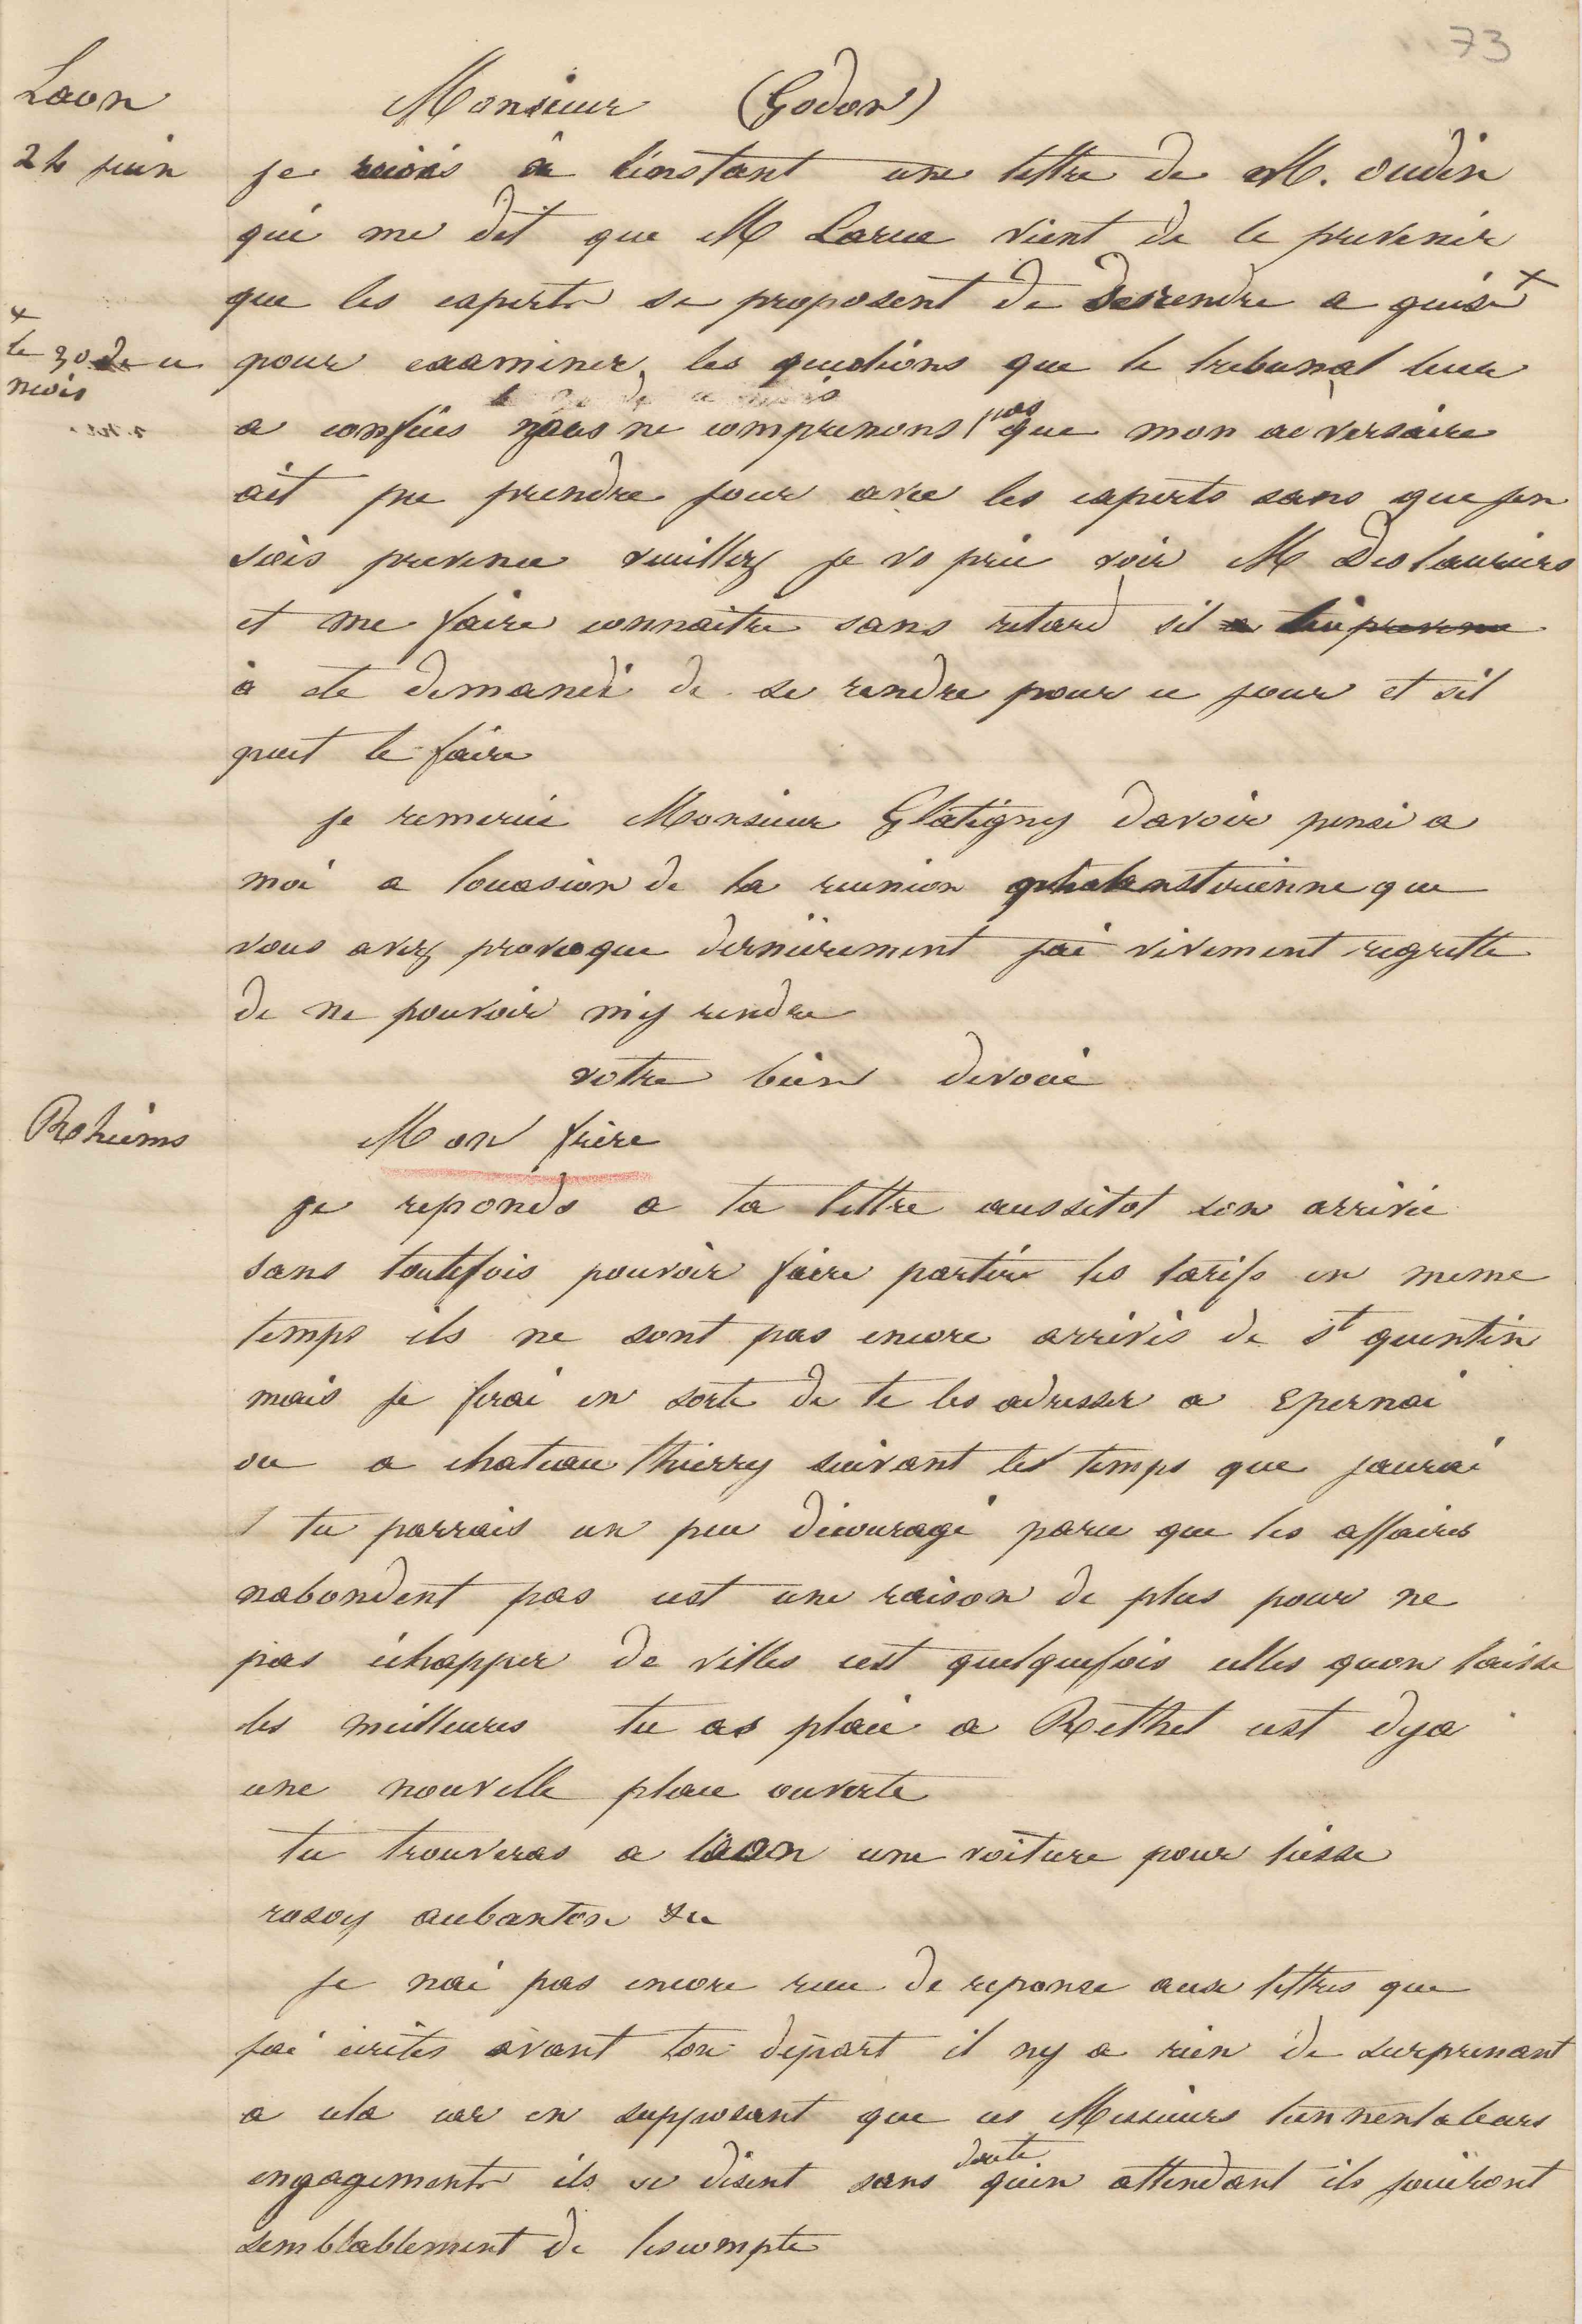 73
Laon
24 juin
Monsieur (Godon)
je reçois a l'instant une lettre de M. oudin
qui me dit que M Larue vient de le prevenir
que les experts se proposent de descendre a guise +
+ le 30 de ce
mois
pour examiner les questions que le tribunal leur
a confiées nous ne comprenons pas que mon adversaire
ait pu prendre jour avec les experts sans que jen
sois prevenu veuillez je vs prie voir M Deslauriers
et me faire connaitre sans retard sil a été prevenu
a ete demandé de se rendre pour ce jour et sil
peut le faire
je remercie Monsieur Glatigny davoir pensé a
moi a loccasion de la reunion phalansterienne que
vous avez provoque dernièrement jai vivement regretté
de ne pouvoir my rendre
votre bien devoué
Rheims
Mon frère
je reponds a ta lettre aussitot son arrivée
sans toutefois pouvoir faire partir les tarifs en meme
temps ils ne sont pas encore arrivés de St quentin
mais je ferai en sorte de te les adresser a Epernai
ou a chateau thierry suivant les temps que jaurai
tu parrais un peu découragé parce que les affaires
nabondent pas cest une raison de plus pour ne
pas échapper de villes cest quelquefois celles quon laisse
les meilleures tu as placé a Rethel cest deja
une nouvelle place ouverte
tu trouveras a laon une voiture pour liesse
rosoy aubanton &c
je nai pas encore recu de reponse aux lettres que
jai écrites avant ton départ il ny a rien de surprenant
a cela car en supposant que ces Messieurs tiennent a leurs
engagements ils se disent sans doute quen attendant ils jouiront
semblablement de lescompte